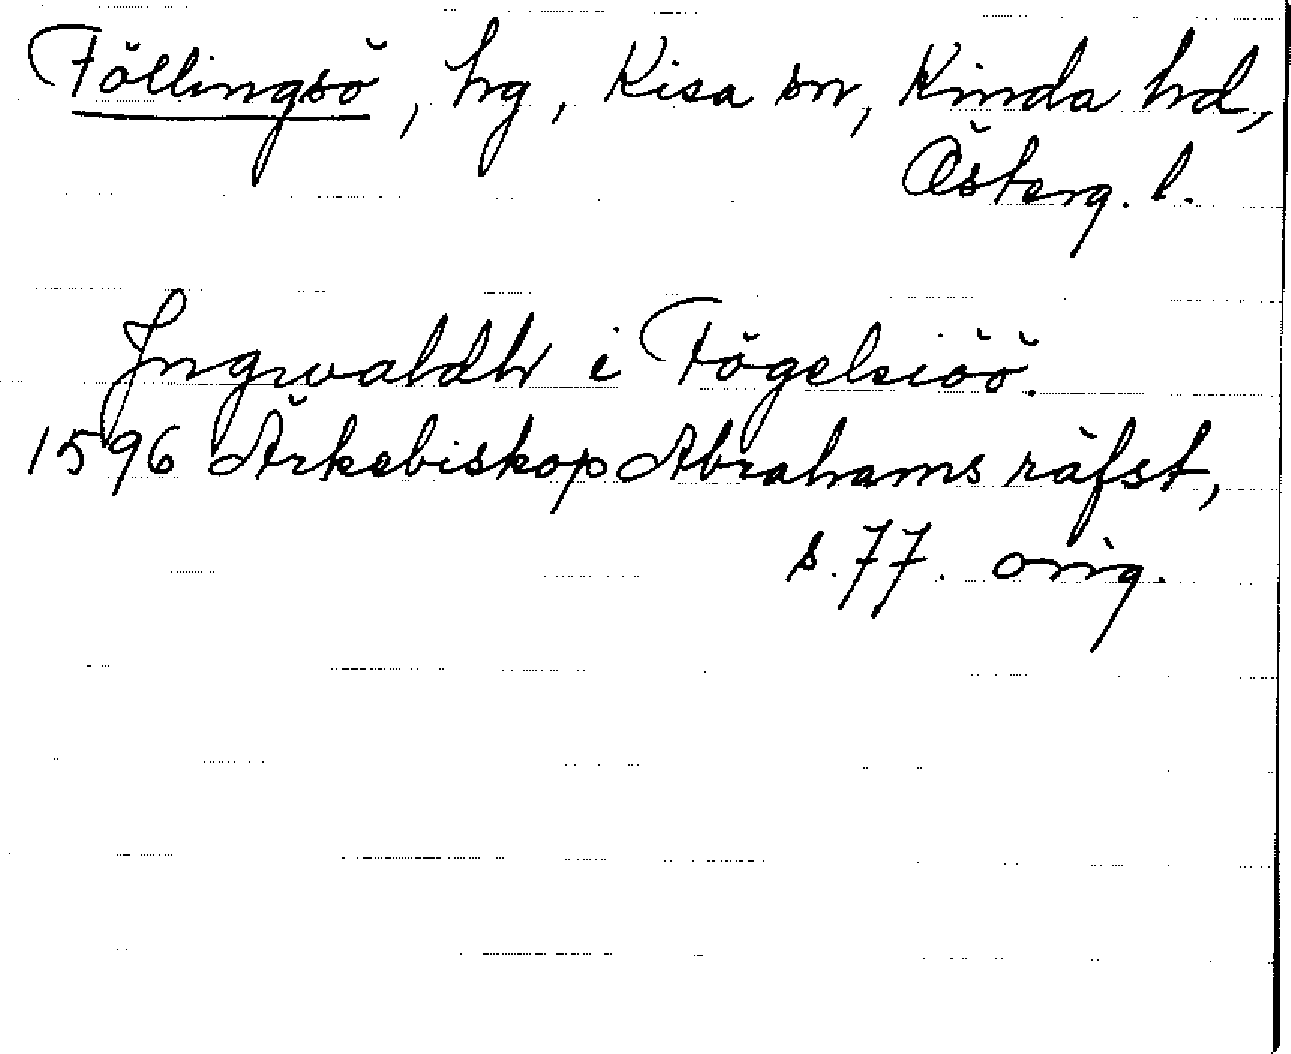 Föllingsö, hg, Kisa sn, Kinda hd,
Österg. l.
Ingwaldh i Fögelsiöö.
1596 Ärkebiskop Abrahams räfst,
s. 77. orig.